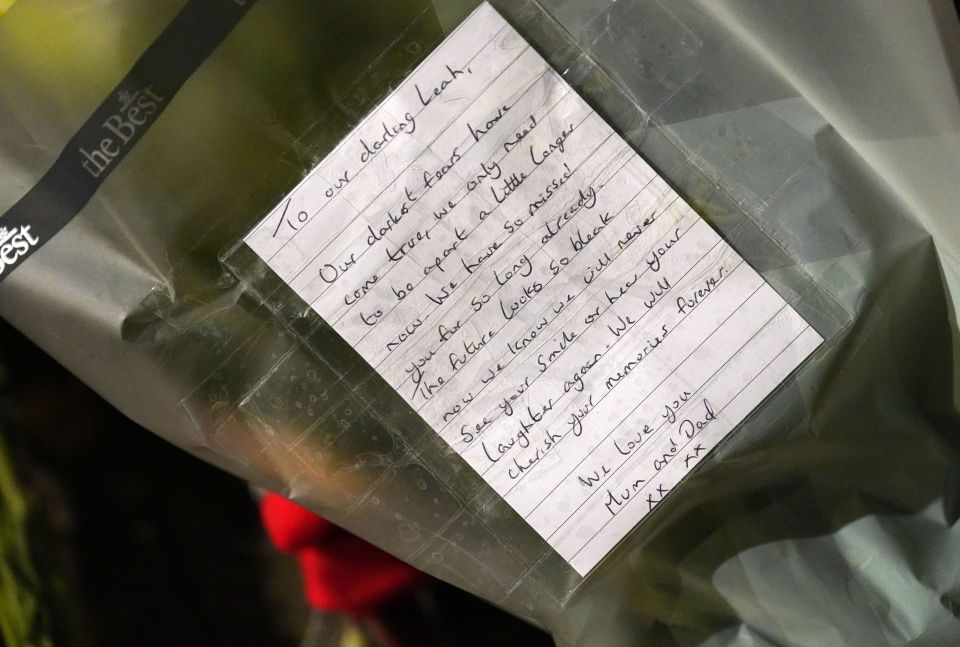 the Best
Best
To our darling Leah,
Our darkest fears have
come true, we only need
to be apart a little longer
now. We have so missed
you for so long already.
The future looks so bleak
now we know we will never
see your smile or hear your
laughter again. We will
cherish your memories forever.
We love you
Mum and Dad
xx xx